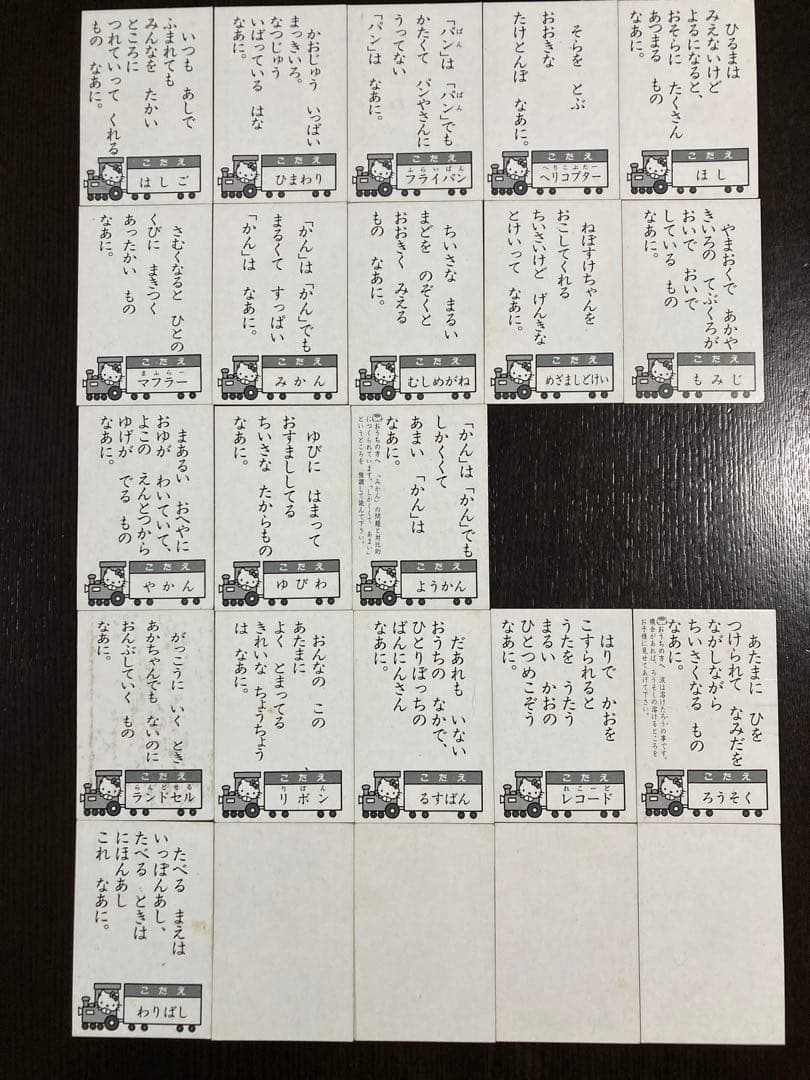 いつも あしで
ふまれても
みんなを たかい
ところに
つれていって くれる
もの なあに。
こたえ
はしご
かおじゅう いっぱい
まっきいろ。
なつじゅう
いばっている はな
なあに。
こたえ
ひまわり
「パン」は 「パン」でも
かたくて パンやさんに
うってない
「パン」は なあに。
こたえ
フライパン
そらを とぶ
おおきな
たけとんぼ なあに。
こたえ
ヘリコプター
ひるまは
みえないけど
よるになると、
おそらに たくさん
あつまる もの
なあに。
こたえ
ほし
さむくなると ひとの
くびに まきつく
あったかい もの
なあに。
こたえ
マフラー
「かん」は 「かん」でも
まるくて すっぱい
「かん」は なあに。
こたえ
みかん
ちいさな まるい
まどを のぞくと
おおきく みえる
もの なあに。
こたえ
むしめがね
ねぼすけちゃんを
おこしてくれる
ちいさいけど げんきな
とけいって なあに。
こたえ
めざましどけい
やまおくで あかや
きいろの てぶくろが
おいで おいで
している もの
なあに。
こたえ
もみじ
まあるい おへやに
おゆが わいていて、
よこの えんとつから
ゆげが でる もの
なあに。
こたえ
やかん
ゆびに はまって
おすまししてる
ちいさな たからもの
なあに。
こたえ
ゆびわ
「かん」は 「かん」でも
しかくくて
あまい 「かん」は
なあに。
おうちの方へ 「みかん」の問題と対比的
につくられています。「しかくくて、あまい」
というところを 強調して読んで下さい。
こたえ
ようかん
がっこうに いく とき
あかちゃんでも ないのに
おんぶしていく もの
なあに。
こたえ
ランドセル
おんなの この
あたまに
よく とまってる
きれいな ちょうちょう
は なあに。
こたえ
リボン
だあれも いない
おうちの なかで、
ひとりぼっちの
ばんにんさん
なあに。
こたえ
るすばん
はりで かおを
こすられると
うたを うたう
まるい かおの
ひとつめこぞう
なあに。
こたえ
レコード
あたまに ひを
つけられて なみだを
ながしながら
ちいさくなる もの
なあに。
おうちの方へ 涙は溶けたろうの事です。
機会があれば、ろうそくの溶けるところを
お子様に見せてあげて下さい。
こたえ
ろうそく
たべる まえは
いっぽんあし、
たべる ときは
にほんあし
これ なあに。
こたえ
わりばし